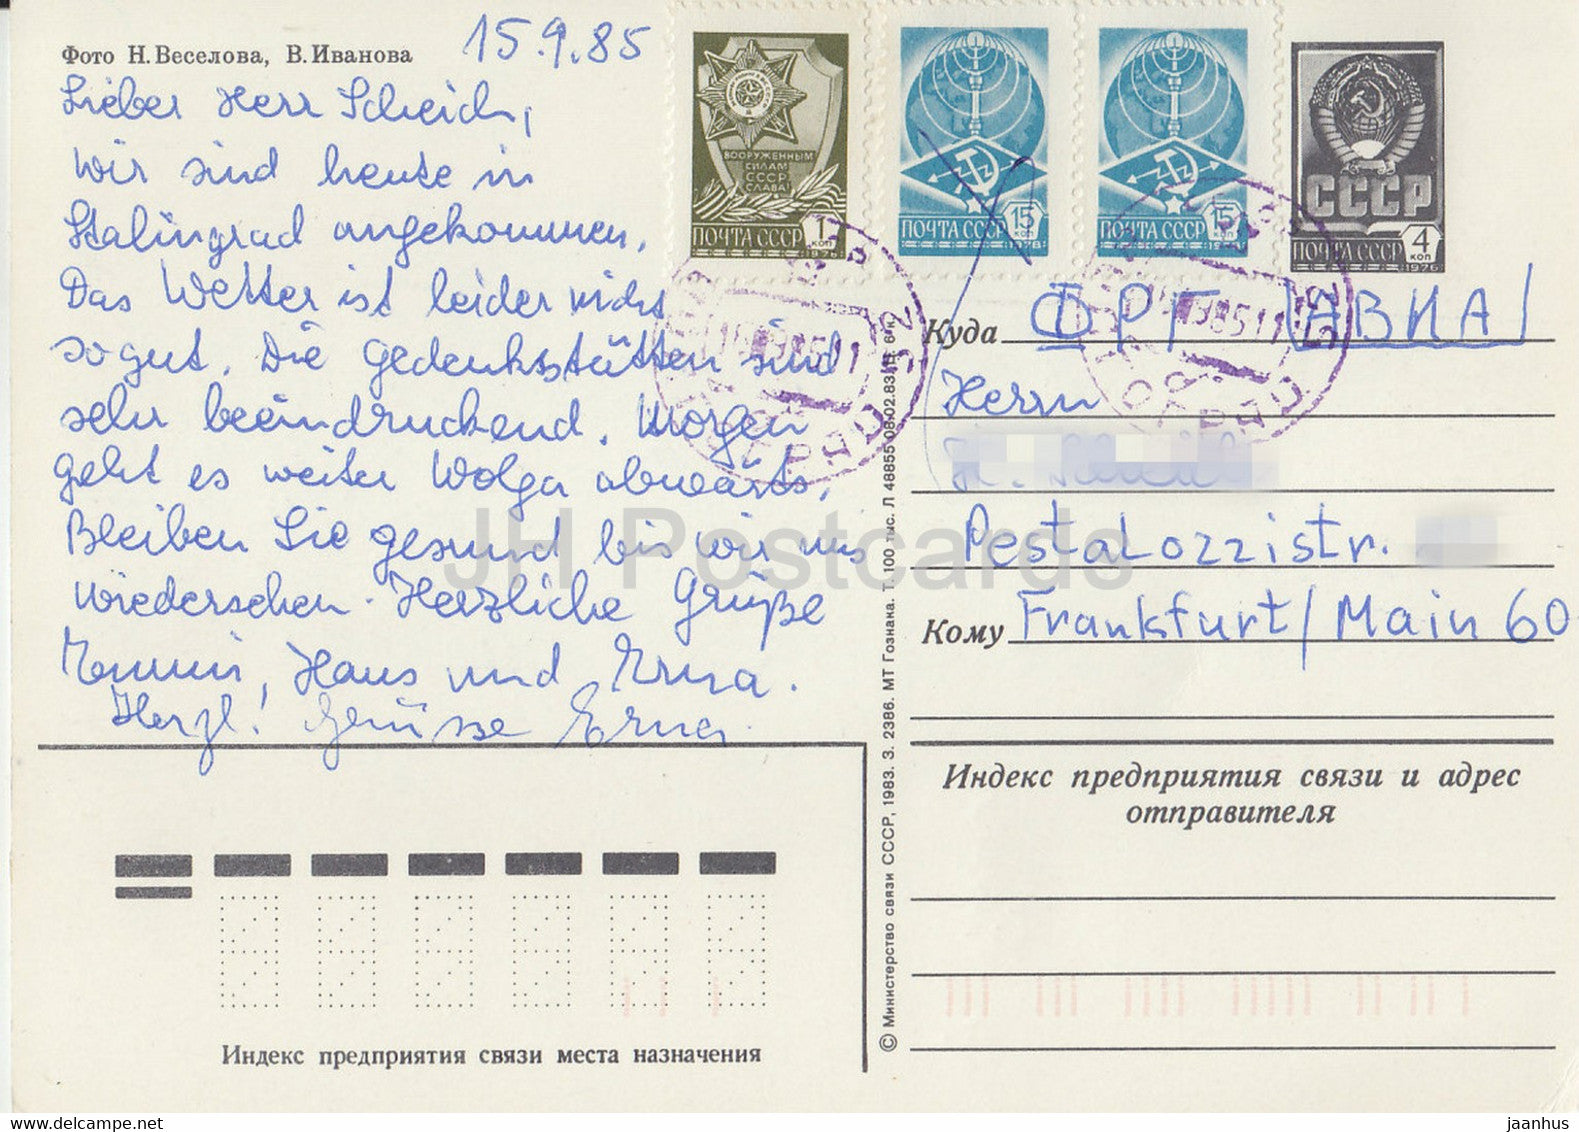 Фото Н. Веселова, В. Иванова
15.9.85
Lieber Herr Scheich,
wir sind heute in
Stalingrad angekommen.
Das Wetter ist leider nicht
so gut. Die Gedenkstätten sind
sehr beeindruckend. Morgen
geht es weiter Wolga abwärts.
Bleiben Sie gesund bis wir uns
wiedersehen. Herzliche Grüße
Hans und Erna.
Herzl! Grüsse Erna
ВООРУЖЕННЫМ
СИЛАМ
СССР
СЛАВА!
ПОЧТА СССР 1 коп
1976
ПОЧТА СССР 15 коп
1978
ПОЧТА СССР 15 коп
СССР
ПОЧТА СССР 4 коп
1976
Куда ФРГ АВИА
Herrn
Pestalozzistr.
Кому Frankfurt/Main 60
Индекс предприятия связи и адрес
отправителя
Индекс предприятия связи места назначения
© Министерство связи СССР, 1983. З. 2386. МТ Гознака. Т. 100 тыс. Л 48855 08.02.83. Ц. 6 к.
JH Postcards
delcampe.net
jaanhus